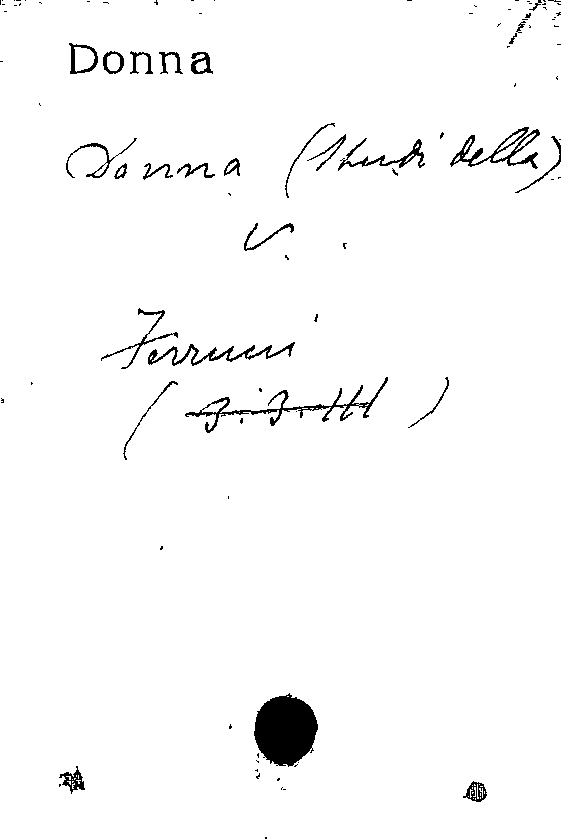 Donna
Donna (Studi della)
V.
Ferrucci
(3.3.III)